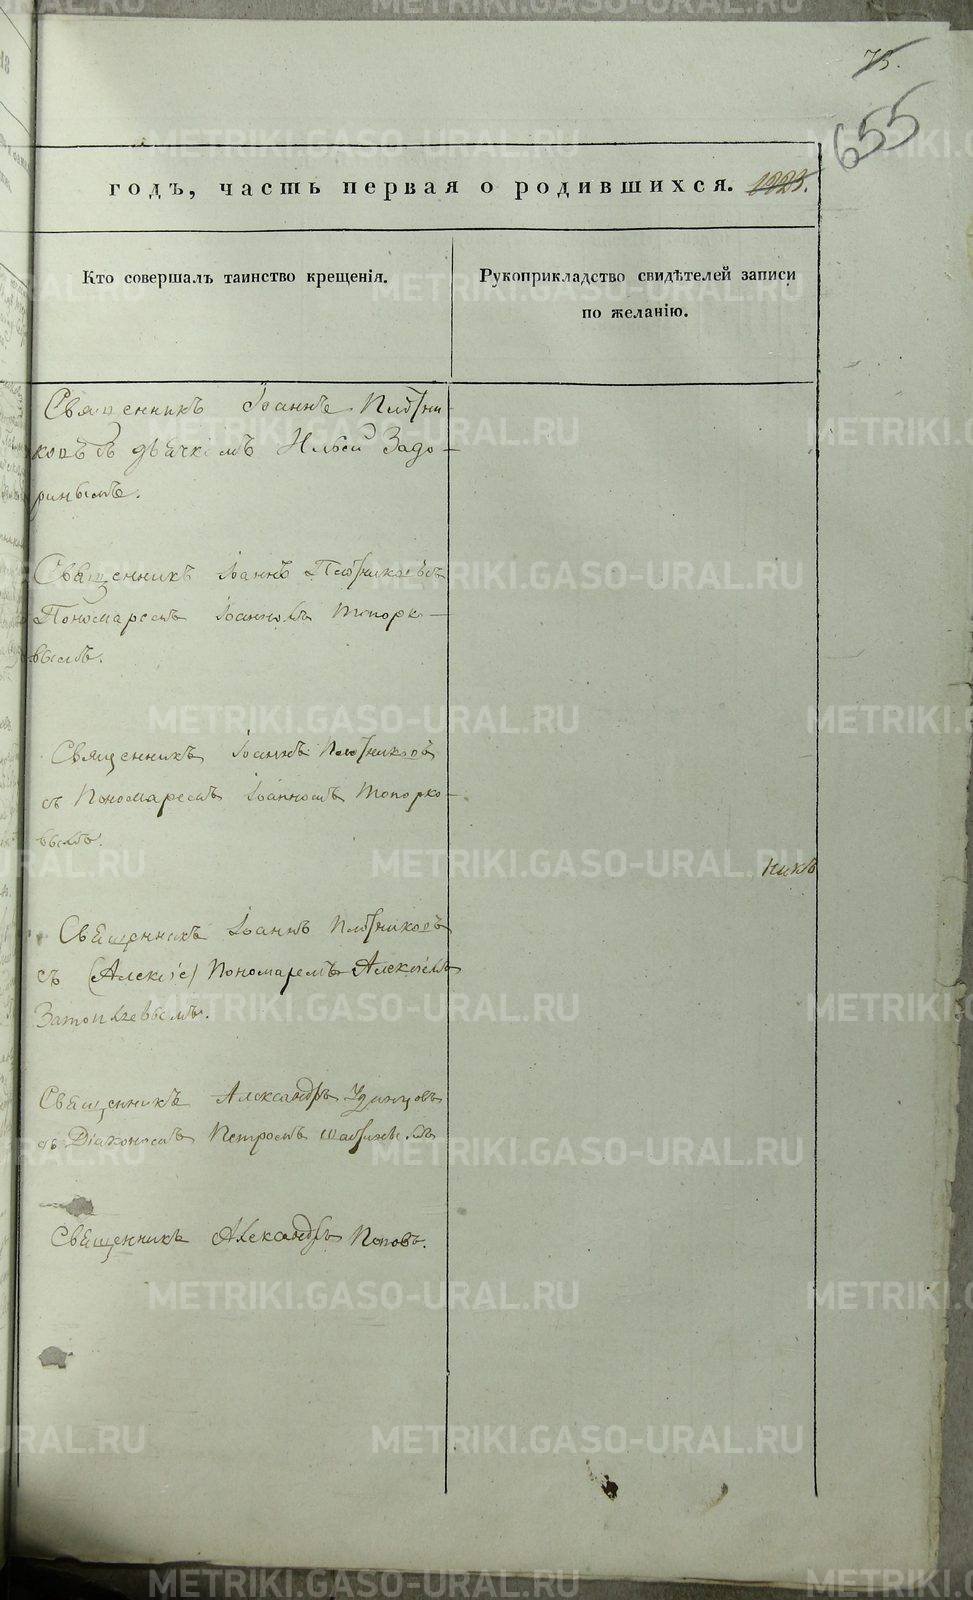 75.
655
годъ, часть первая о родившихся. 1823.
Кто совершалъ таинство крещенія.
Рукоприкладство свидѣтелей записи
по желанію.
Священникъ Іоаннъ Плотни-
ковъ съ дьячкомъ Ильей Задо-
ринымъ.
Священникъ Іоаннъ Плотниковъ съ
Пономаремъ Іоанномъ Топорко-
вымъ.
Священникъ Іоаннъ Плотниковъ
съ Пономаремъ Іоанномъ Топорко-
вымъ.
никъ
Священникъ Іоаннъ Плотниковъ
съ (Алексіе) Пономаремъ Алексіемъ
Затопляевымъ.
Священникъ Александръ Удинцовъ
съ Діакономъ Петромъ
Священникъ Александръ Поповъ.
METRIKI.GASO-URAL.RU